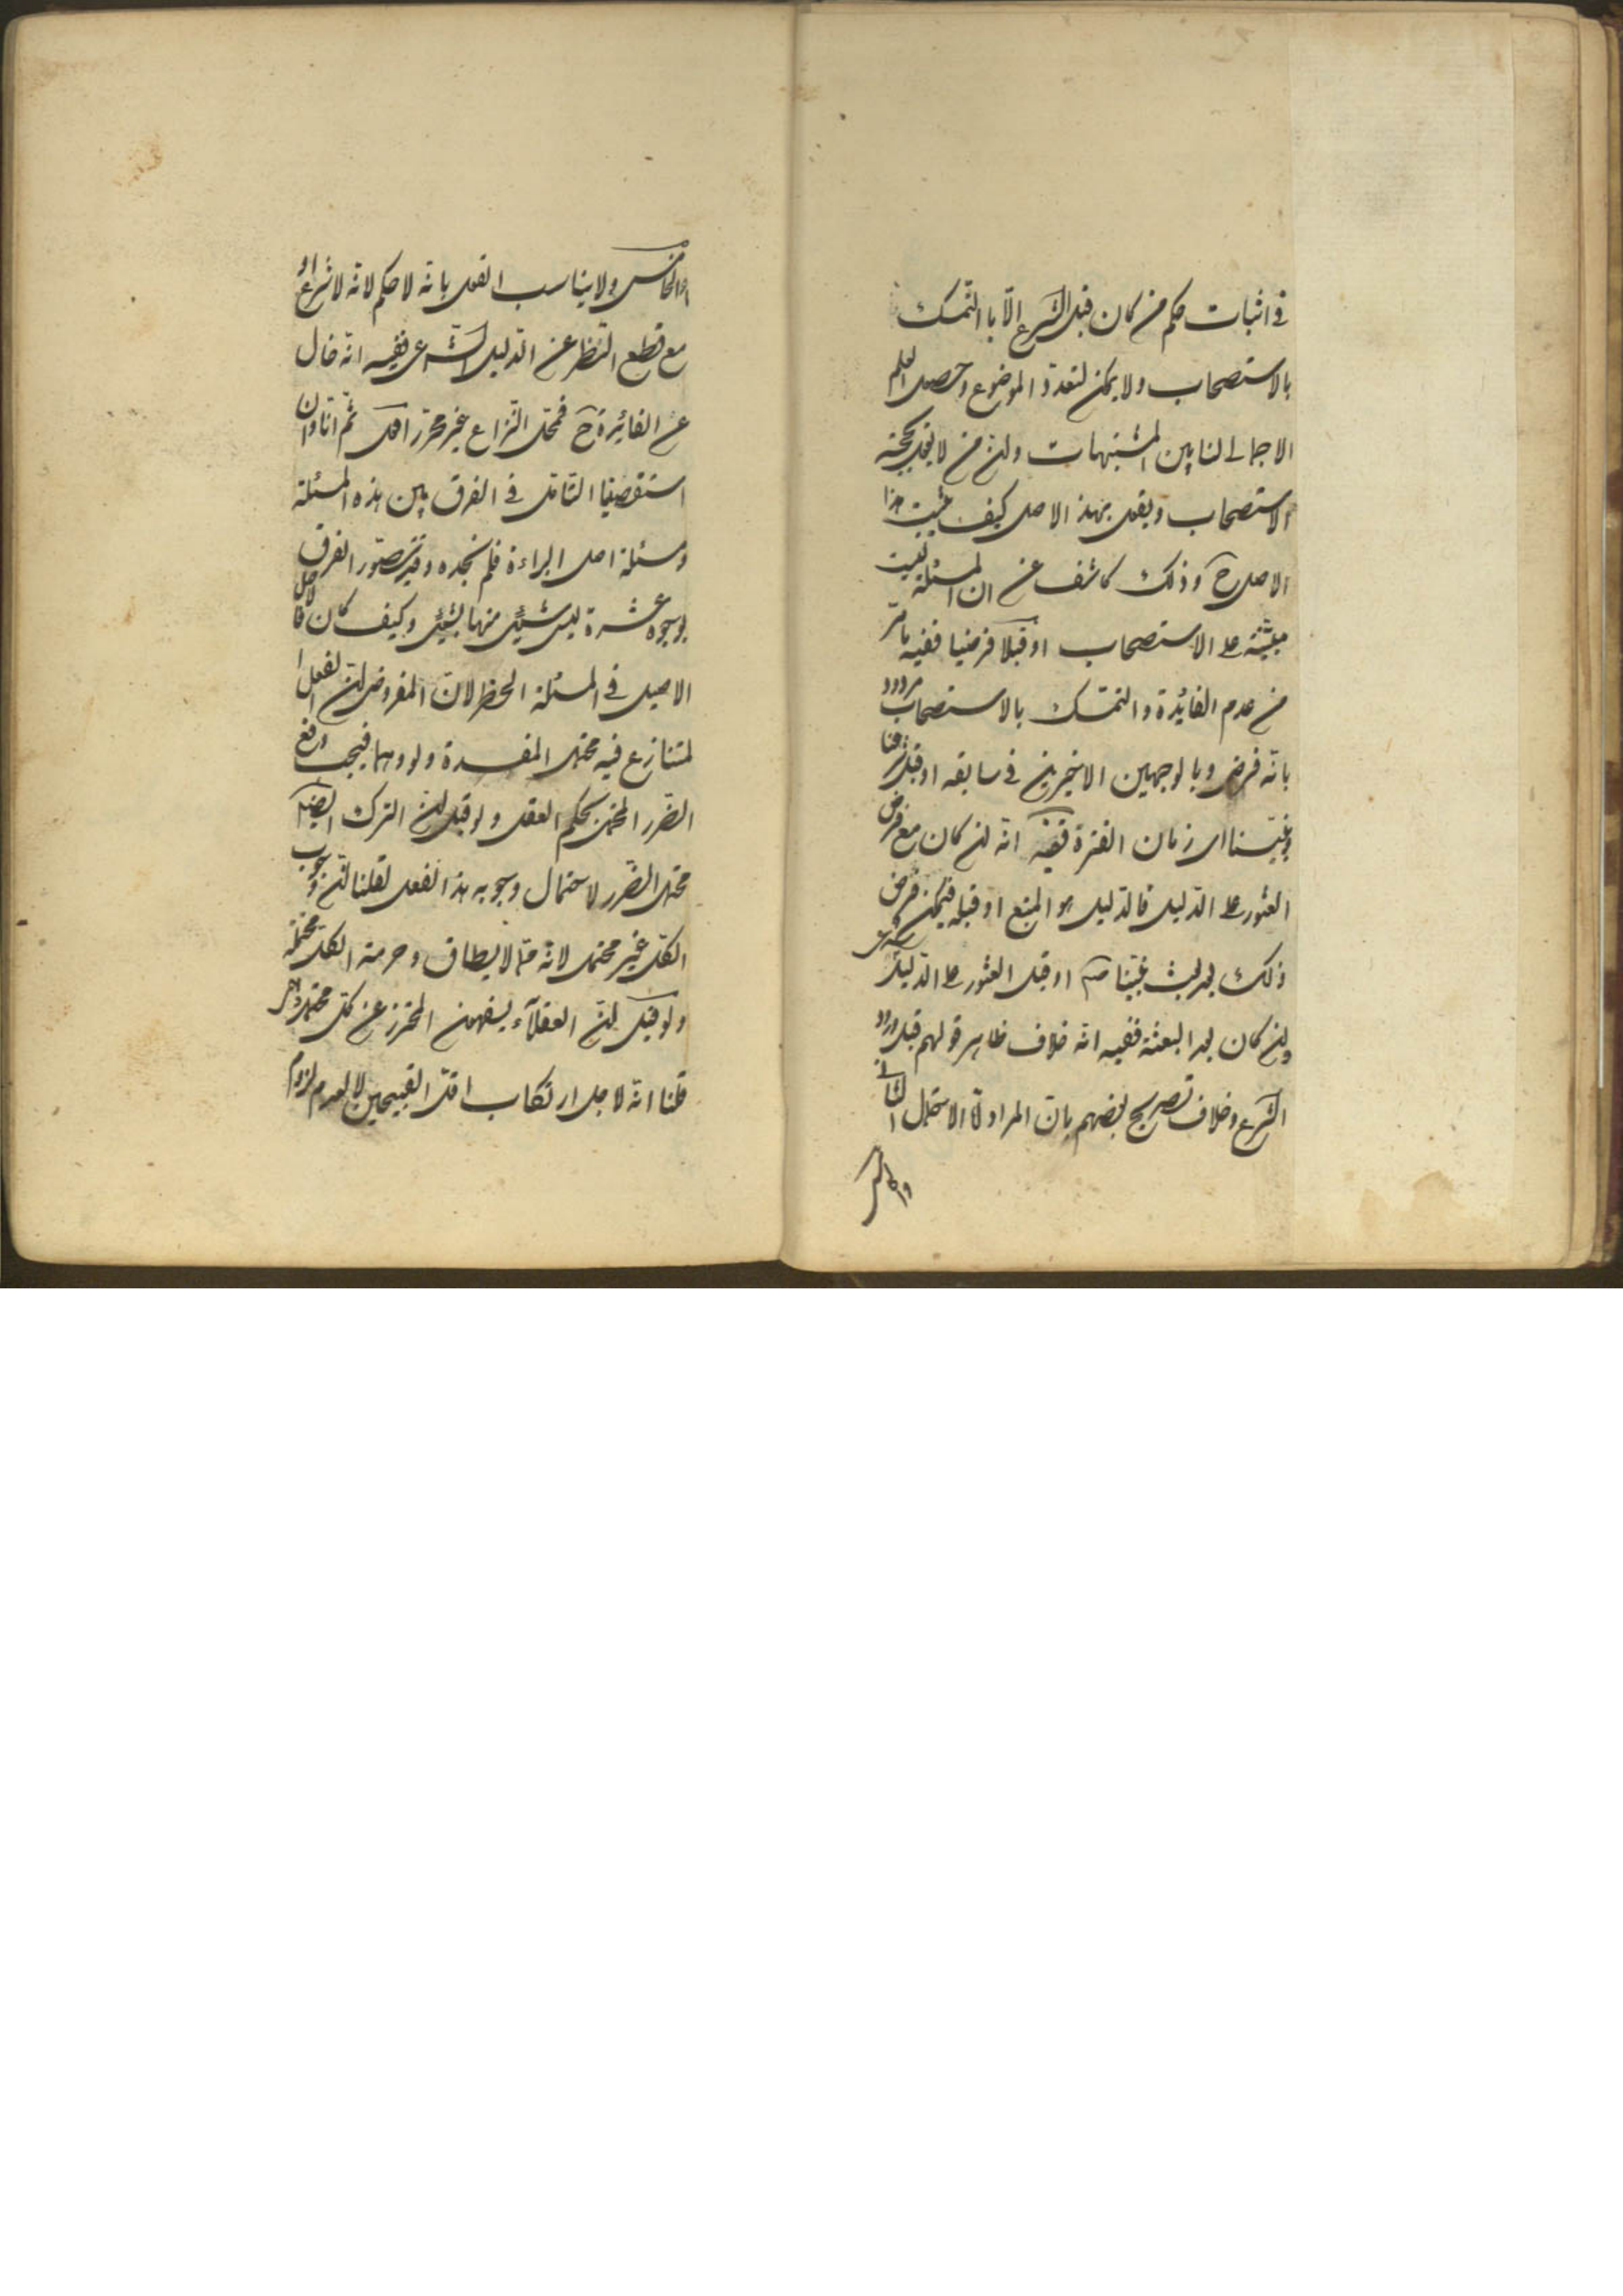 في اثبات حكم من كان قبل الشرع الّا بالتمسك
بالاستصحاب ولا يمكن لتعدد الموضوع وحصول العلم
الاجمالى لنا بين المشتبهات ولئن من لا يقول بحجية
الاستصحاب ويقول بهذا الاصل كيف يثبت هذا
الاصل ح وذلك كاشف عن ان المسئلة ليست
مبنيّة على الاستصحاب او قبلا فرضيا ففيه ما مر
من عدم الفائدة والتمسك بالاستصحاب مردود
بانّه فرض وبالوجهين الاخيرين في سابقه او قبل شرعنا
ونبيّنا اى زمان الفترة ففيه انّه ان كان مع فرض
العثور على الدليل فالدليل هو المتبع او قبله فيمكن فرض
ذلك بعد بعث نبيّنا ص او قبل العثور على الدليل
وان كان بعد البعثة ففيه انه خلاف ظاهر قولهم قبل ورود
الشرع وخلاف تصريح بعضهم بانّ المراد الاحتمال الثانى
والخامس
او الخامس ولا يناسب القول بانه لا حكم لانه لا شرع او
مع قطع النظر عن الدليل الشرعى ففيه انه خال
عن الفائدة ح فمحل النزاع غير محرر ثم انا وان
استقصينا التامل في الفرق بين هذه المسئلة
ومسئلة اصل البراءة فلم نجده وقد يتصور الفرق
بوجوه عشرة ليس شيئ منها بشيئ وكيف كان فالاصل
الاصيل في المسئلة الحظر لان المفروض ان الفعل
المتنازع فيه محتمل المفسدة ولو وهما فيجب دفع
الضّرر المحتمل بحكم العقل ولو قيل ان الترك ايضا
محتمل الضّرر لاحتمال وجوب هذا الفعل لقلنا ان وجوب
الكل غير محتمل لانه مما لا يطاق وحرمة الكل محتملة
ولو قيل ان العقلآء يسفهون المحترز عن كل محتمل
قلنا انه لاجل ارتكاب اقل القبيحين لا لعدم لزوم